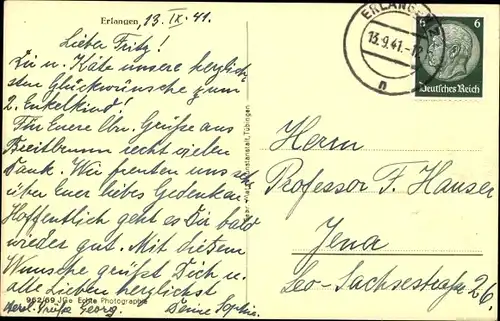 Erlangen, 13. IX. 41.
Lieber Fritz!
Dir u. Käte unsere herzlich-
sten Glückwünsche zum
2. Enkelkind!
Für Euere Grüße aus
Breitbrunn recht vielen
Dank. Wir freuten uns sehr
über Euer liebes Gedenken.
Hoffentlich geht es Dir bald
wieder gut. Mit diesem
Wunsche grüßt Dich u.
alle Lieben herzlichst
Deine Sophie.
herzl. Grüße Georg.
962/69 Echte Photographie
Kunstanstalt, Tübingen
ERLANGEN 2
13.9.41.-12
n
6
Deutsches Reich
Herrn
Professor F. Hauser
Jena
Leo-Sachsestraße 26,